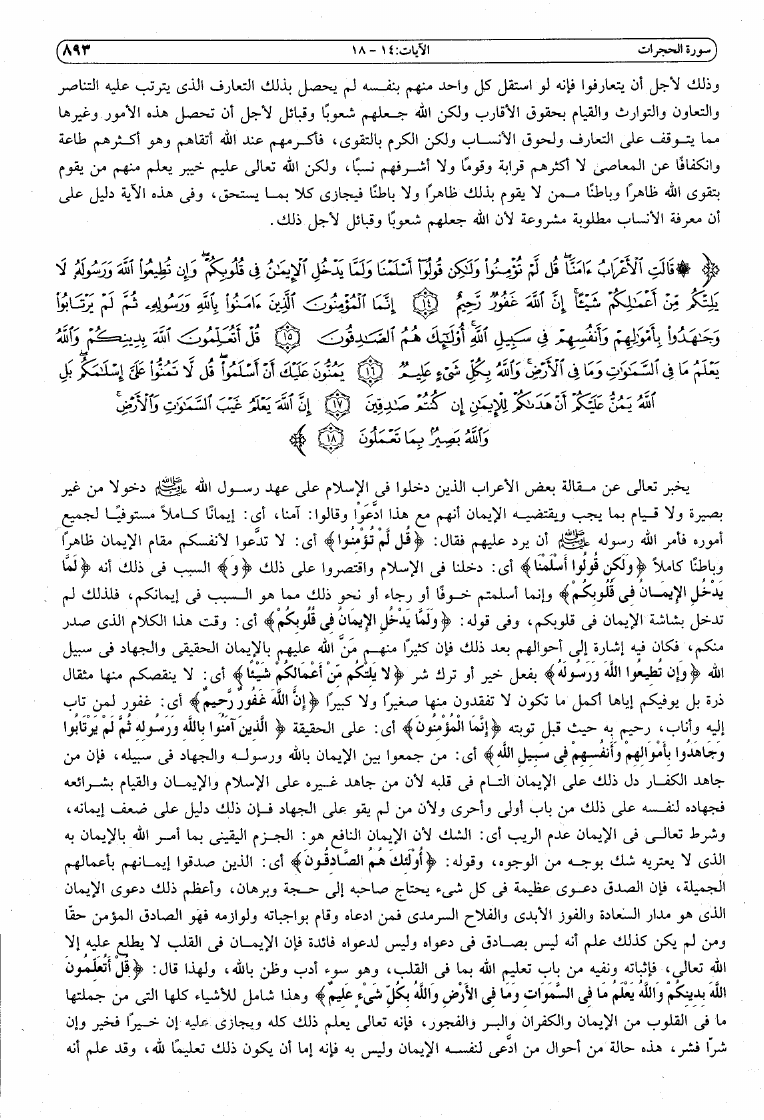 سورة الحجرات الآيات: ١٤ - ١٨ ٨٩٣
وذلك لأجل أن يتعارفوا فإنه لو استقل كل واحد منهم بنفسه لم يحصل بذلك التعارف الذى يترتب عليه التناصر
والتعاون والتوارث والقيام بحقوق الأقارب ولكن الله جعلهم شعوبًا وقبائل لأجل أن تحصل هذه الأمور وغيرها
مما يتوقف على التعارف ولحوق الأنساب ولكن الكرم بالتقوى، فأكرمهم عند الله أتقاهم وهو أكثرهم طاعة
وانكفافًا عن المعاصى لا أكثرهم قرابة وقومًا ولا أشرفهم نسبًا، ولكن الله تعالى عليم خبير يعلم منهم من يقوم
بتقوى الله ظاهرًا وباطنًا ممن لا يقوم بذلك ظاهرًا ولا باطنًا فيجازى كلا بما يستحق، وفى هذه الآية دليل على
أن معرفة الأنساب مطلوبة مشروعة لأن الله جعلهم شعوبًا وقبائل لأجل ذلك.
﴿ ۞ قَالَتِ ٱلْأَعْرَابُ ءَامَنَّا ۖ قُل لَّمْ تُؤْمِنُوا۟ وَلَٰكِن قُولُوٓا۟ أَسْلَمْنَا وَلَمَّا يَدْخُلِ ٱلْإِيمَٰنُ فِى قُلُوبِكُمْ ۖ وَإِن تُطِيعُوا۟ ٱللَّهَ وَرَسُولَهُۥ لَا
يَلِتْكُم مِّنْ أَعْمَٰلِكُمْ شَيْـًٔا ۚ إِنَّ ٱللَّهَ غَفُورٌ رَّحِيمٌ ١٤ إِنَّمَا ٱلْمُؤْمِنُونَ ٱلَّذِينَ ءَامَنُوا۟ بِٱللَّهِ وَرَسُولِهِۦ ثُمَّ لَمْ يَرْتَابُوا۟
وَجَٰهَدُوا۟ بِأَمْوَٰلِهِمْ وَأَنفُسِهِمْ فِى سَبِيلِ ٱللَّهِ ۚ أُو۟لَٰٓئِكَ هُمُ ٱلصَّٰدِقُونَ ١٥ قُلْ أَتُعَلِّمُونَ ٱللَّهَ بِدِينِكُمْ وَٱللَّهُ
يَعْلَمُ مَا فِى ٱلسَّمَٰوَٰتِ وَمَا فِى ٱلْأَرْضِ ۚ وَٱللَّهُ بِكُلِّ شَىْءٍ عَلِيمٌ ١٦ يَمُنُّونَ عَلَيْكَ أَنْ أَسْلَمُوا۟ ۖ قُل لَّا تَمُنُّوا۟ عَلَىَّ إِسْلَٰمَكُم ۖ بَلِ
ٱللَّهُ يَمُنُّ عَلَيْكُمْ أَنْ هَدَىٰكُمْ لِلْإِيمَٰنِ إِن كُنتُمْ صَٰدِقِينَ ١٧ إِنَّ ٱللَّهَ يَعْلَمُ غَيْبَ ٱلسَّمَٰوَٰتِ وَٱلْأَرْضِ ۚ
وَٱللَّهُ بَصِيرٌۢ بِمَا تَعْمَلُونَ ١٨ ﴾
يخبر تعالى عن مقالة بعض الأعراب الذين دخلوا فى الإسلام على عهد رسول الله ﷺ دخولا من غير
بصيرة ولا قيام بما يجب ويقتضيه الإيمان أنهم مع هذا ادَّعَوْا وقالوا: آمنا، أى: إيمانًا كاملاً مستوفيًا لجميع
أموره فأمر الله رسوله ﷺ أن يرد عليهم فقال: ﴿قُل لَّمْ تُؤْمِنُوا﴾ أى: لا تدَّعوا لأنفسكم مقام الإيمان ظاهرًا
وباطنًا كاملاً ﴿وَلَكِن قُولُوا أَسْلَمْنَا﴾ أى: دخلنا فى الإسلام واقتصروا على ذلك ﴿وَ﴾ السبب فى ذلك أنه ﴿لَمَّا
يَدْخُلِ الإِيمَانُ فِى قُلُوبِكُمْ﴾ وإنما أسلمتم خوفًا أو رجاء أو نحو ذلك مما هو السبب فى إيمانكم، فلذلك لم
تدخل بشاشة الإيمان فى قلوبكم، وفى قوله: ﴿وَلَمَّا يَدْخُلِ الإِيمَانُ فِى قُلُوبِكُمْ﴾ أى: وقت هذا الكلام الذى صدر
منكم، فكان فيه إشارة إلى أحوالهم بعد ذلك فإن كثيرًا منهم مَنَّ الله عليهم بالإيمان الحقيقى والجهاد فى سبيل
الله ﴿وَإِن تُطِيعُوا اللَّهَ وَرَسُولَهُ﴾ بفعل خير أو ترك شر ﴿لا يَلِتْكُم مِّنْ أَعْمَالِكُمْ شَيْئًا﴾ أى: لا ينقصكم منها مثقال
ذرة بل يوفيكم إياها أكمل ما تكون لا تفقدون منها صغيرًا ولا كبيرًا ﴿إِنَّ اللَّهَ غَفُورٌ رَّحِيمٌ﴾ أى: غفور لمن تاب
إليه وأناب، رحيم به حيث قبل توبته ﴿إِنَّمَا الْمُؤْمِنُونَ﴾ أى: على الحقيقة ﴿الَّذِينَ آمَنُوا بِاللَّهِ وَرَسُولِهِ ثُمَّ لَمْ يَرْتَابُوا
وَجَاهَدُوا بِأَمْوَالِهِمْ وَأَنفُسِهِمْ فِى سَبِيلِ اللَّهِ﴾ أى: من جمعوا بين الإيمان بالله ورسوله والجهاد فى سبيله، فإن من
جاهد الكفار دل ذلك على الإيمان التام فى قلبه لأن من جاهد غيره على الإسلام والإيمان والقيام بشرائعه
فجهاده لنفسه على ذلك من باب أولى وأحرى ولأن من لم يقو على الجهاد فإن ذلك دليل على ضعف إيمانه،
وشرط تعالى فى الإيمان عدم الريب أى: الشك لأن الإيمان النافع هو: الجزم اليقينى بما أمر الله بالإيمان به
الذى لا يعتريه شك بوجه من الوجوه، وقوله: ﴿أُوْلَئِكَ هُمُ الصَّادِقُونَ﴾ أى: الذين صدقوا إيمانهم بأعمالهم
الجميلة، فإن الصدق دعوى عظيمة فى كل شىء يحتاج صاحبه إلى حجة وبرهان، وأعظم ذلك دعوى الإيمان
الذى هو مدار السعادة والفوز الأبدى والفلاح السرمدى فمن ادعاه وقام بواجباته ولوازمه فهو الصادق المؤمن حقًا
ومن لم يكن كذلك علم أنه ليس بصادق فى دعواه وليس لدعواه فائدة فإن الإيمان فى القلب لا يطلع عليه إلا
الله تعالى، فإثباته ونفيه من باب تعليم الله بما فى القلب، وهو سوء أدب وظن بالله، ولهذا قال: ﴿قُلْ أَتُعَلِّمُونَ
اللَّهَ بِدِينِكُمْ وَاللَّهُ يَعْلَمُ مَا فِى السَّمَوَاتِ وَمَا فِى الأَرْضِ وَاللَّهُ بِكُلِّ شَىْءٍ عَلِيمٌ﴾ وهذا شامل للأشياء كلها التى من جملتها
ما فى القلوب من الإيمان والكفران والبر والفجور، فإنه تعالى يعلم ذلك كله ويجازى عليه إن خيرًا فخير وإن
شرًا فشر، هذه حالة من أحوال من ادَّعى لنفسه الإيمان وليس به فإنه إما أن يكون ذلك تعليمًا لله، وقد علم أنه